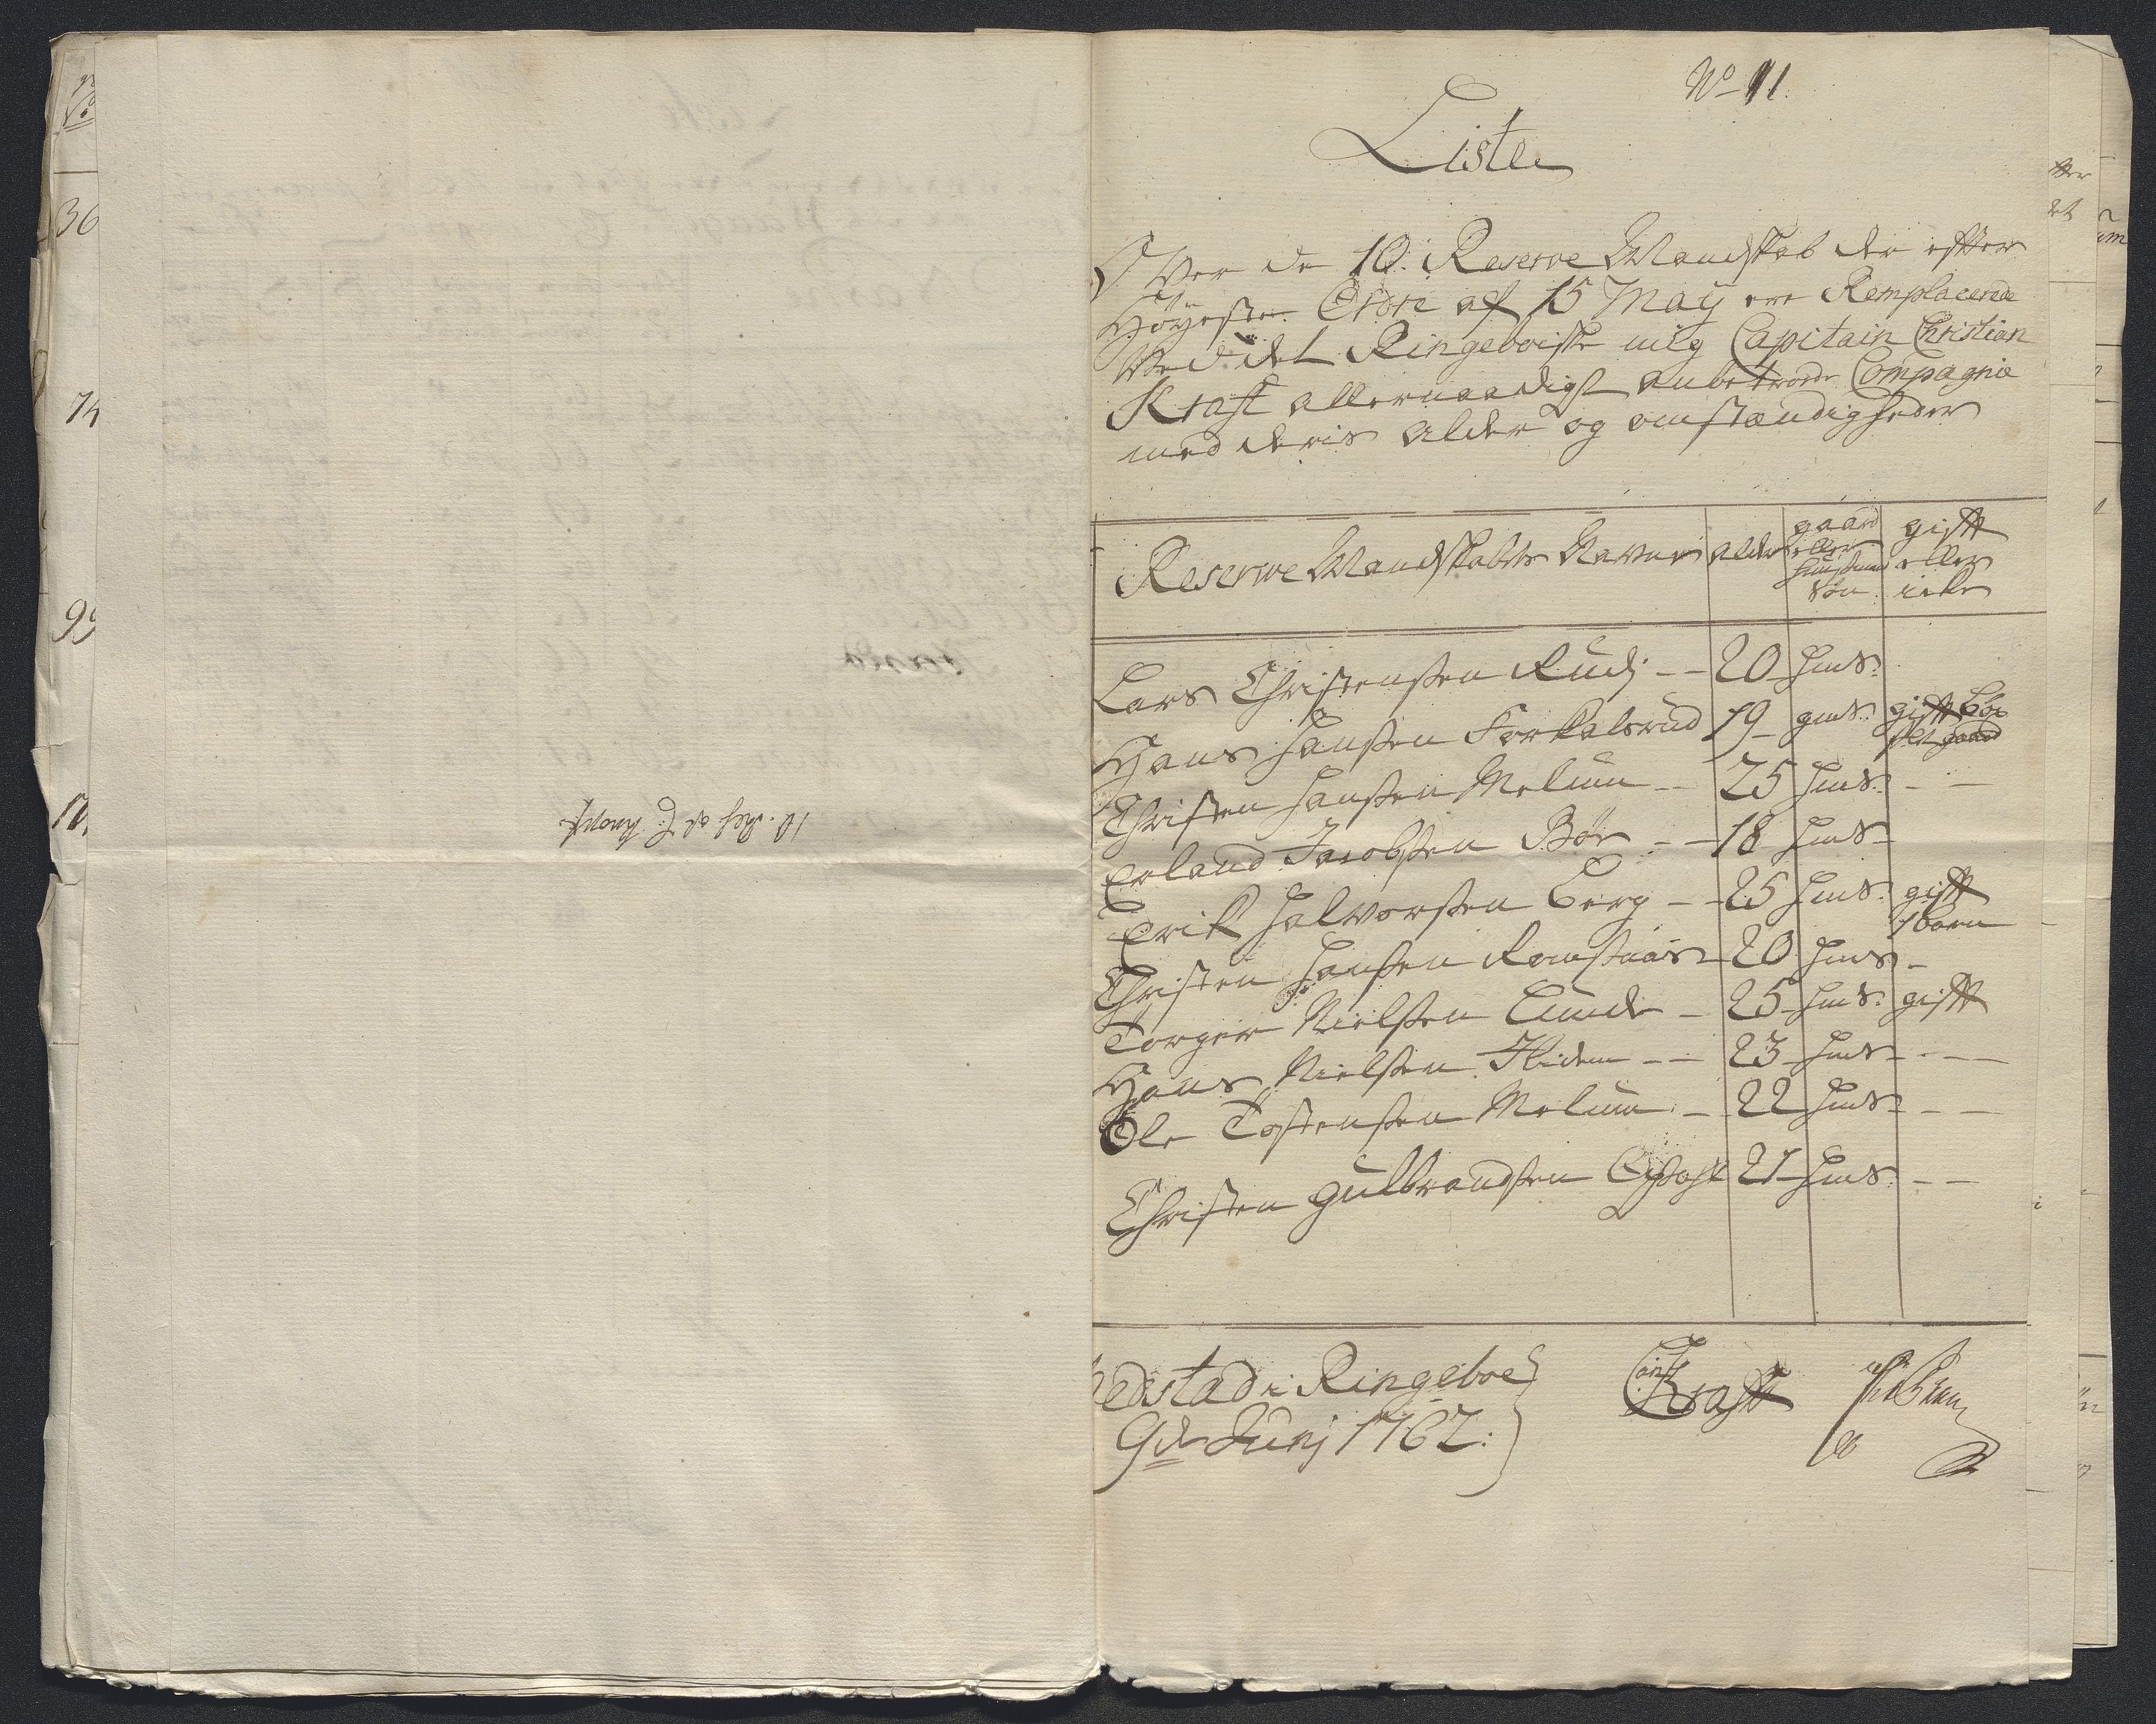 No 11.
Liste
Over de 10. Reserve Mandskab der efter
Höyeste Ordre af 15 May ere Remplacerede
Ved det Ringeboiske mig Capitain Christian
Kraft allernaadigst anbetroede Compagnie
med deris Alder og omstændigheder
Reserve Mandskabets Navne alder gaard eller huusmand Sön gift eller icke
Lars Christensen Rudj -- 20 hmS.
Hans Hansen Forkalsrud 19 gmS. gift
Christen Hansen Melum -- 25 hmS. - -
Erland Jacobsen Bör -- 18 hmS -
Erik Halvorsen Berg -- 25 hmS. gift
1 barn
Christen Hansen Romsaas - 20 hmS -
Torger Nielsen Lunde - 25 hmS. gift
Hans Nielsen Ibidem -- 23 hmS - - -
Ole Tostensen Melum - 22 hmS - -
Christen Gulbrandsen 21 hmS. - -
edstad i Ringeboe
9de Junj 1762.
Kraft
36
74